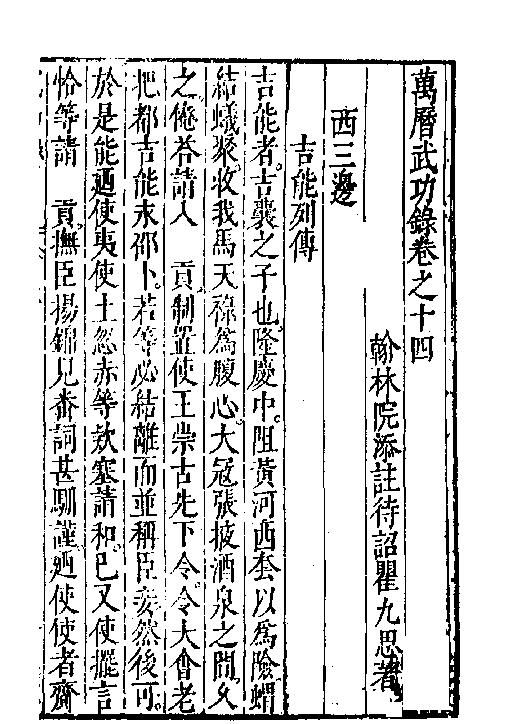 萬曆武功錄卷之十四
翰林院添註待詔瞿九思著
西三邊
吉能列傳
吉能者吉囊之子也隆慶中阻黃河西套以為險蝟
結蟻聚收我馬天祿為腹心大冦張掖酒泉之間久
之俺荅請入 貢制置使王崇古先下令令大會老
把都吉能永邵卜若等必結離而並稱臣妾然後可
於是能廼使夷使土忽赤等欵塞請和已又使擺言
恰等請 貢撫臣揚錦見番詞甚馴謹廼使使者齎